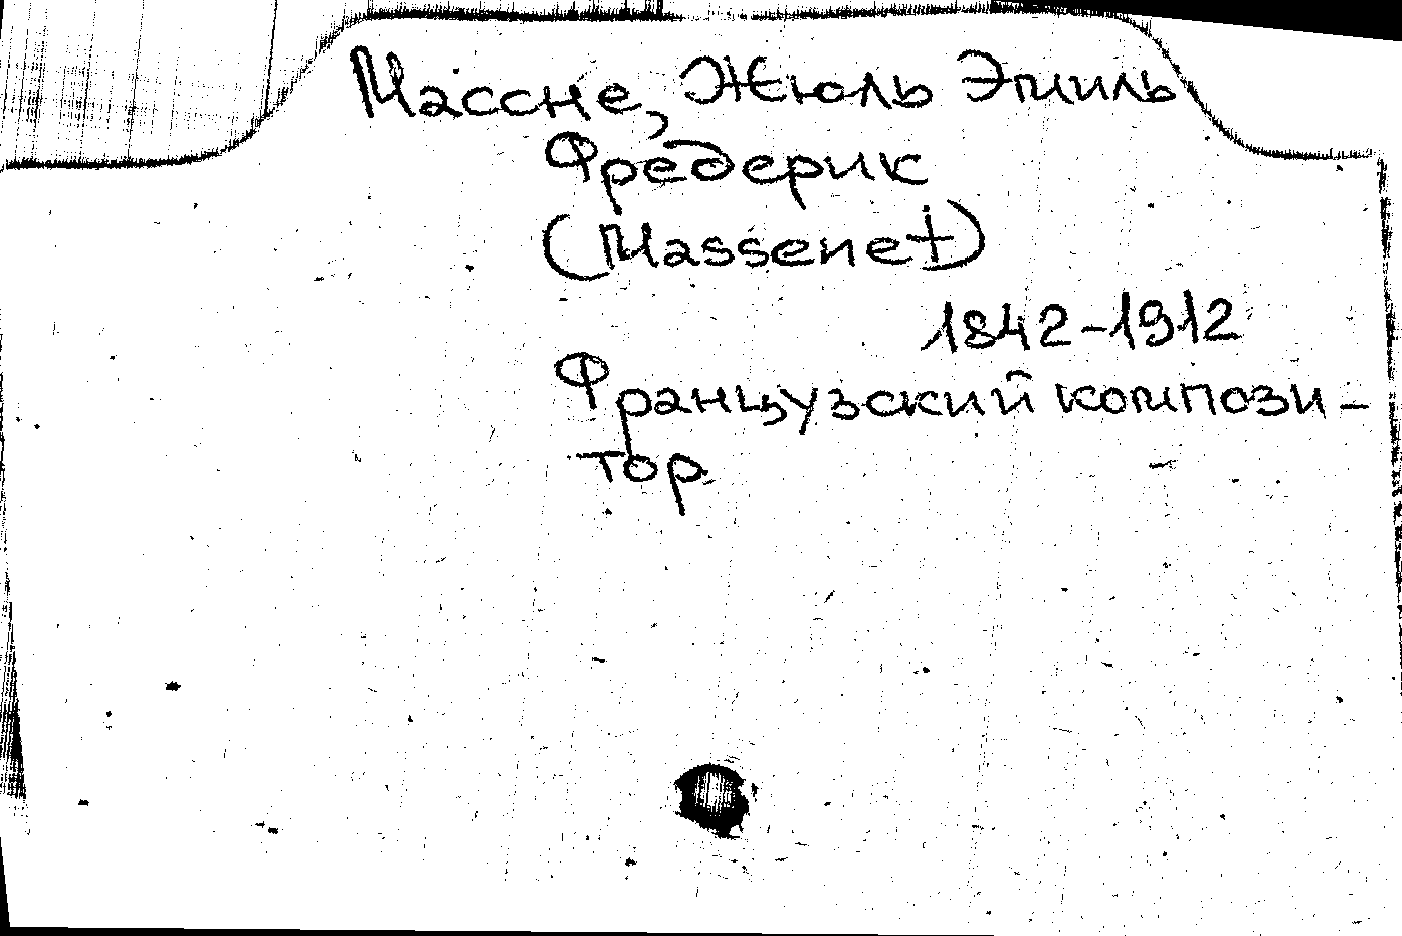 Массне, Жюль Эмиль
Фредерик
(Massenet)
1842-1912
Французский компози-
тор